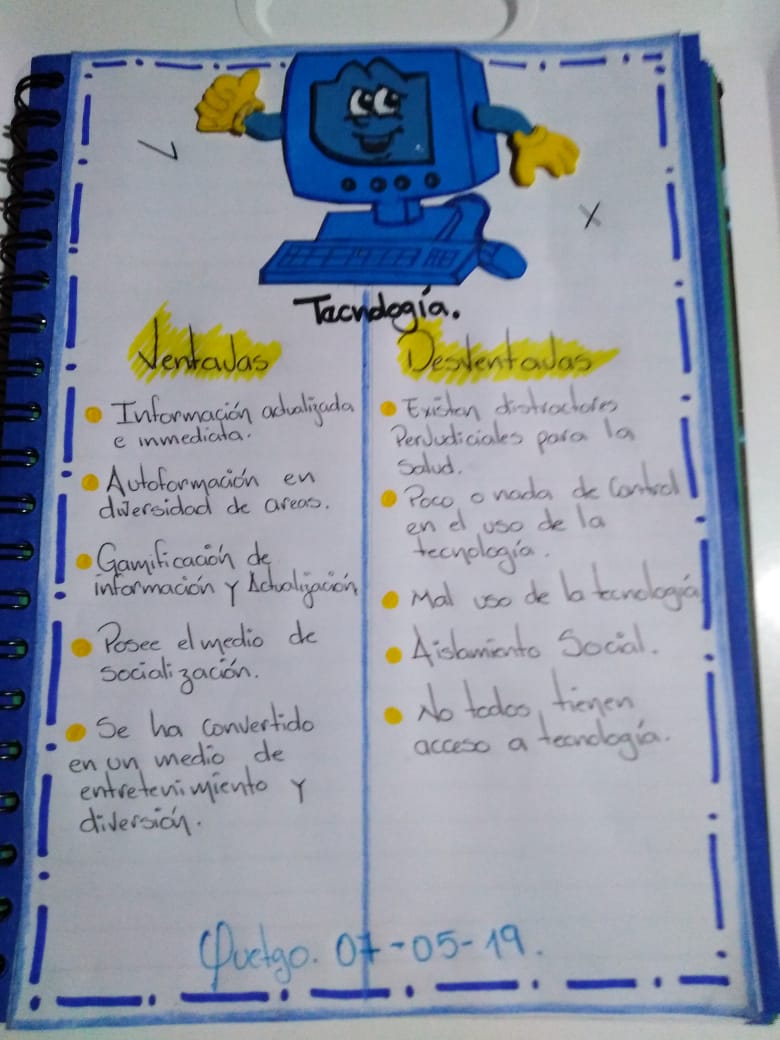 V
X
Tecnología.
Ventajas
Información actualizada
e inmediata.
Autoformación en
diversidad de areas.
Gamificación de
información y Actualización
Posee el medio de
socialización.
Se ha convertido
en un medio de
entretenimiento y
diversión.
Desventajas
Existen distractores
Perjudiciales para la
salud.
Poco o nada de Control
en el uso de la
tecnología.
Mal uso de la tecnología
Aislamiento Social.
No todos tienen
acceso a tecnología.
07-05-19.